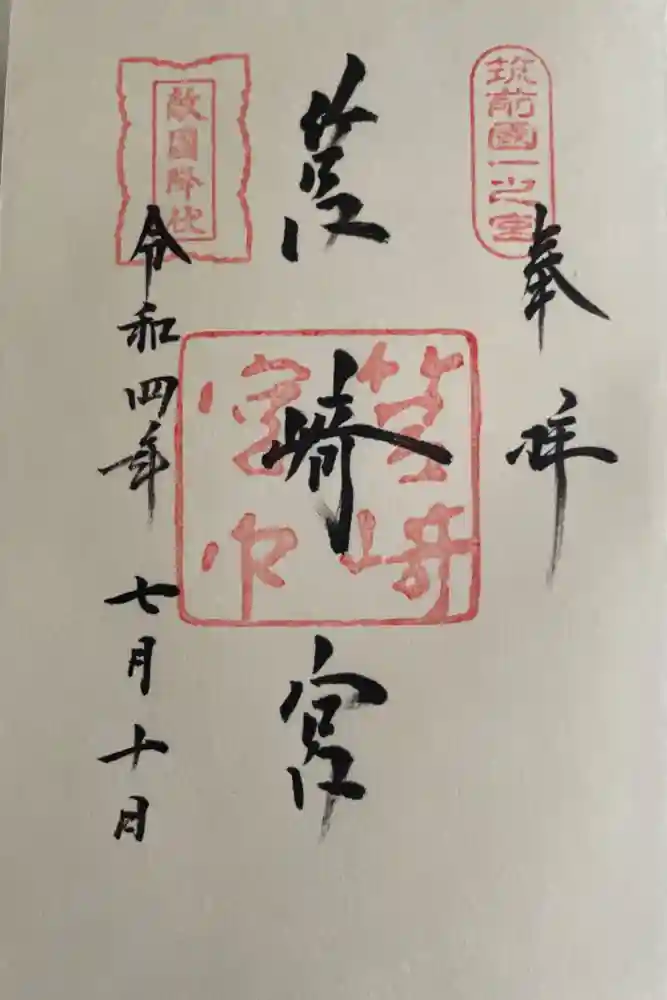 筑前國一之宮
奉拝
筥崎宮
筥崎宮印
敵國降伏
令和四年七月十日